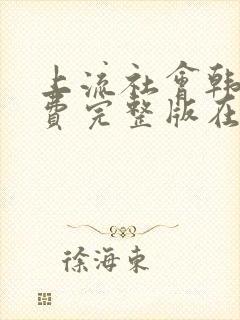 上流社會韩
費完整版在
徐海東